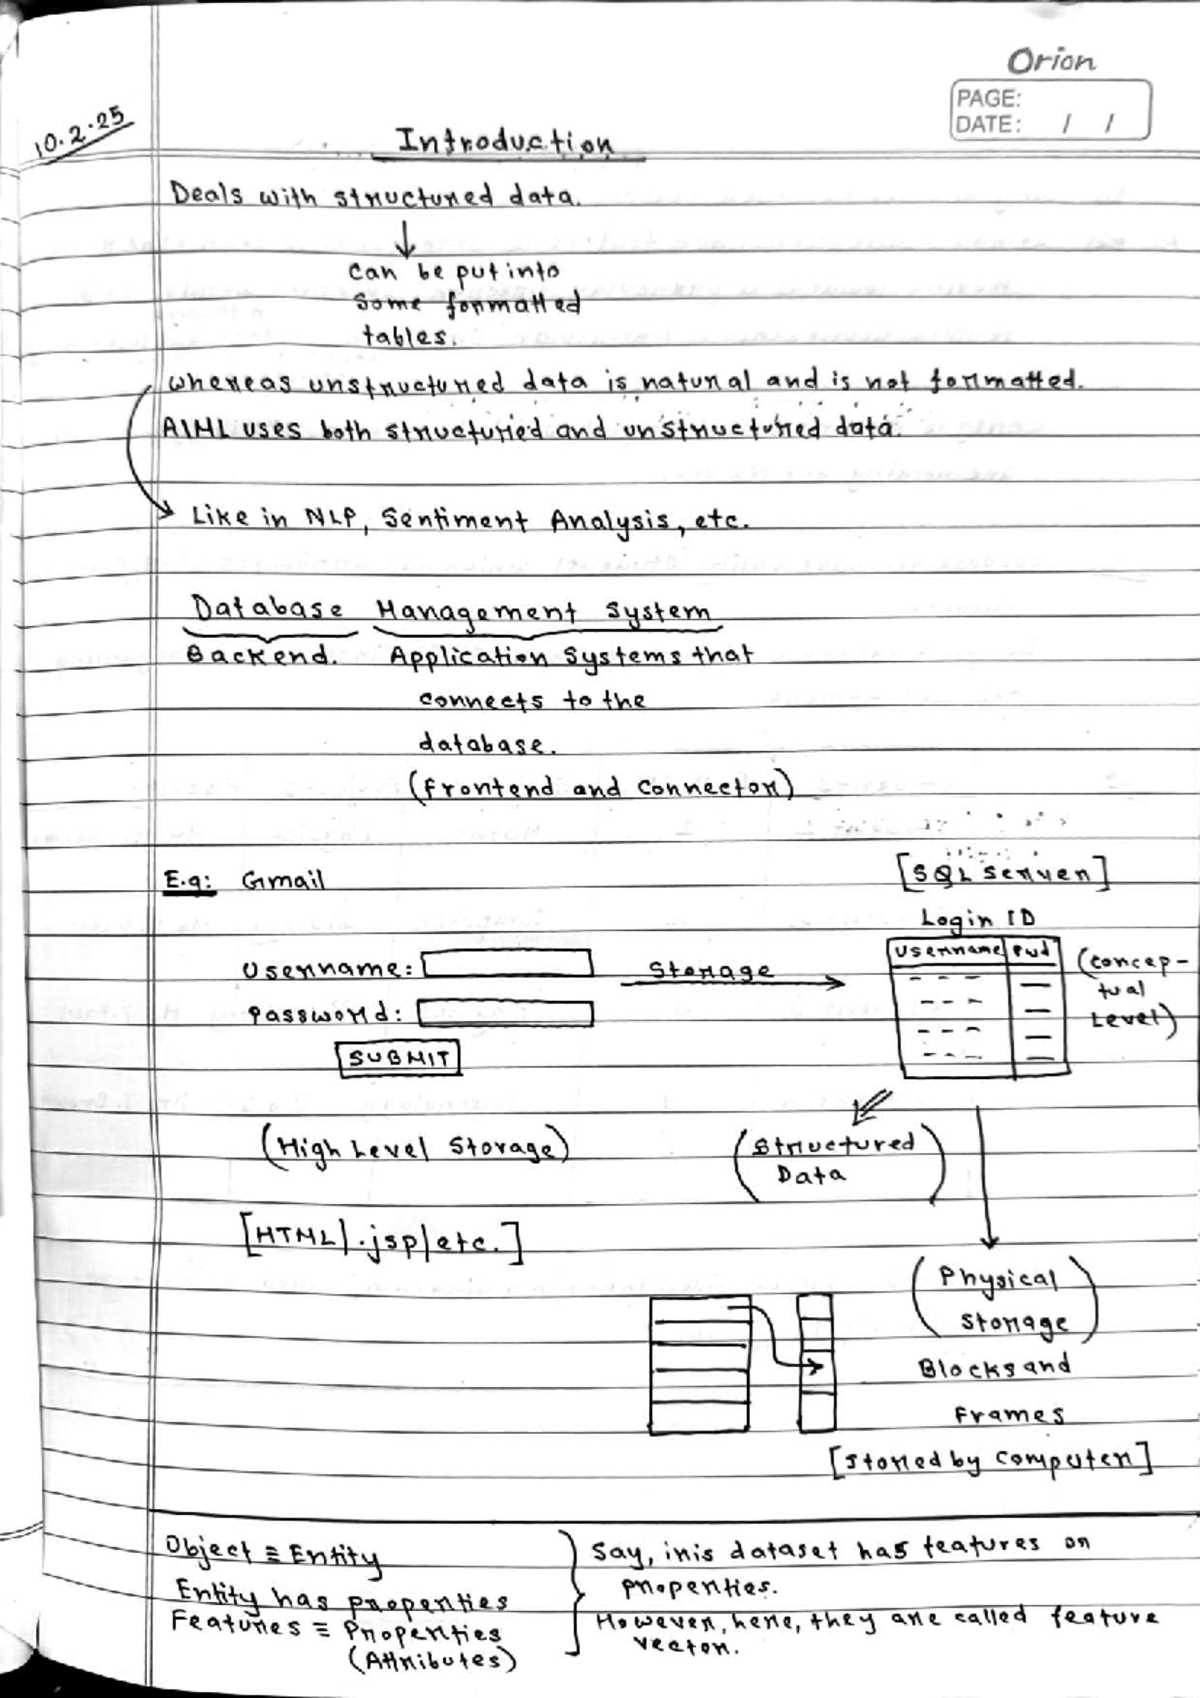 Orion
PAGE:
DATE: / /
10.2.25
Introduction
Deals with structured data.
can be put into
some formatted
tables.
whereas unstructured data is natural and is not formatted.
AIML uses both structured and unstructured data.
Like in NLP, Sentiment Analysis, etc.
Database Management System
Backend. Application Systems that
connects to the
database.
(Frontend and Connector)
E.g: Gmail
[SQL Server]
Login ID
Username Pwd
Username: Storage
(concep-
tual
Level)
Password:
SUBMIT
(High Level Storage)
(Structured
Data)
[HTML|.jsp|etc.]
(Physical
Storage)
Blocks and
Frames
[Stored by Computer]
Object ≡ Entity
Entity has properties
Features ≡ Properties
(Attributes)
Say, iris dataset has features or
properties.
However, here, they are called feature
vector.